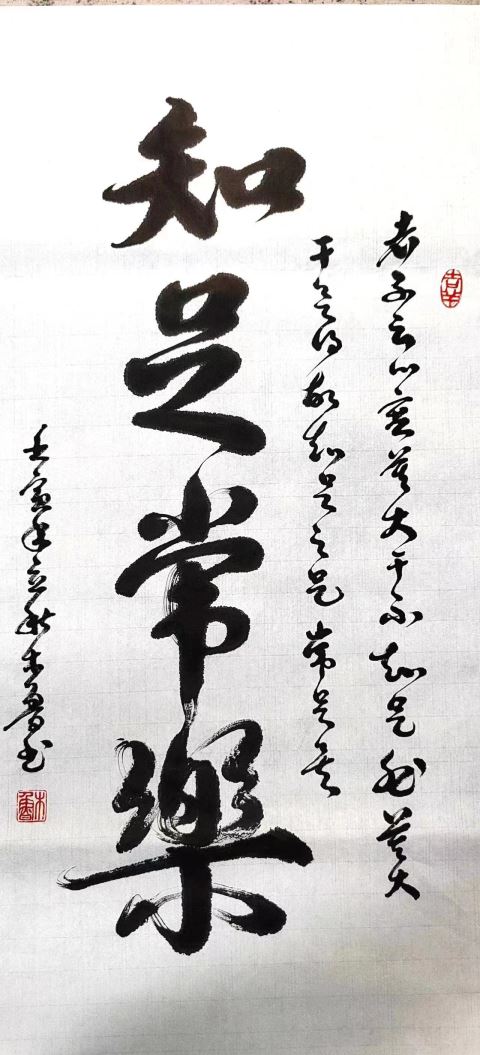 吉羊
老子云莫大于不知足咎莫大
于欲得故知足之足常足矣
知足常樂
壬寅年立秋木魯书
木魯